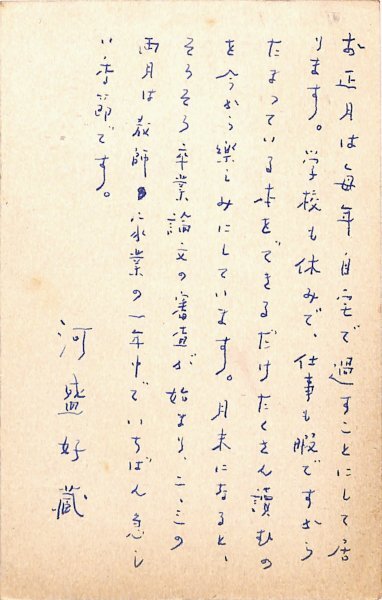 お正月は毎年自宅で過すことにして居
ります。学校も休みで、仕事も暇ですから
たまっている本をできるだけたくさん讀むの
を今から樂しみにしています。月末になると、
そろそろ卒業論文の審査が始まり、二、三の
両月は教師家業の一年中でいちばん忽し
い季節です。
河盛好蔵